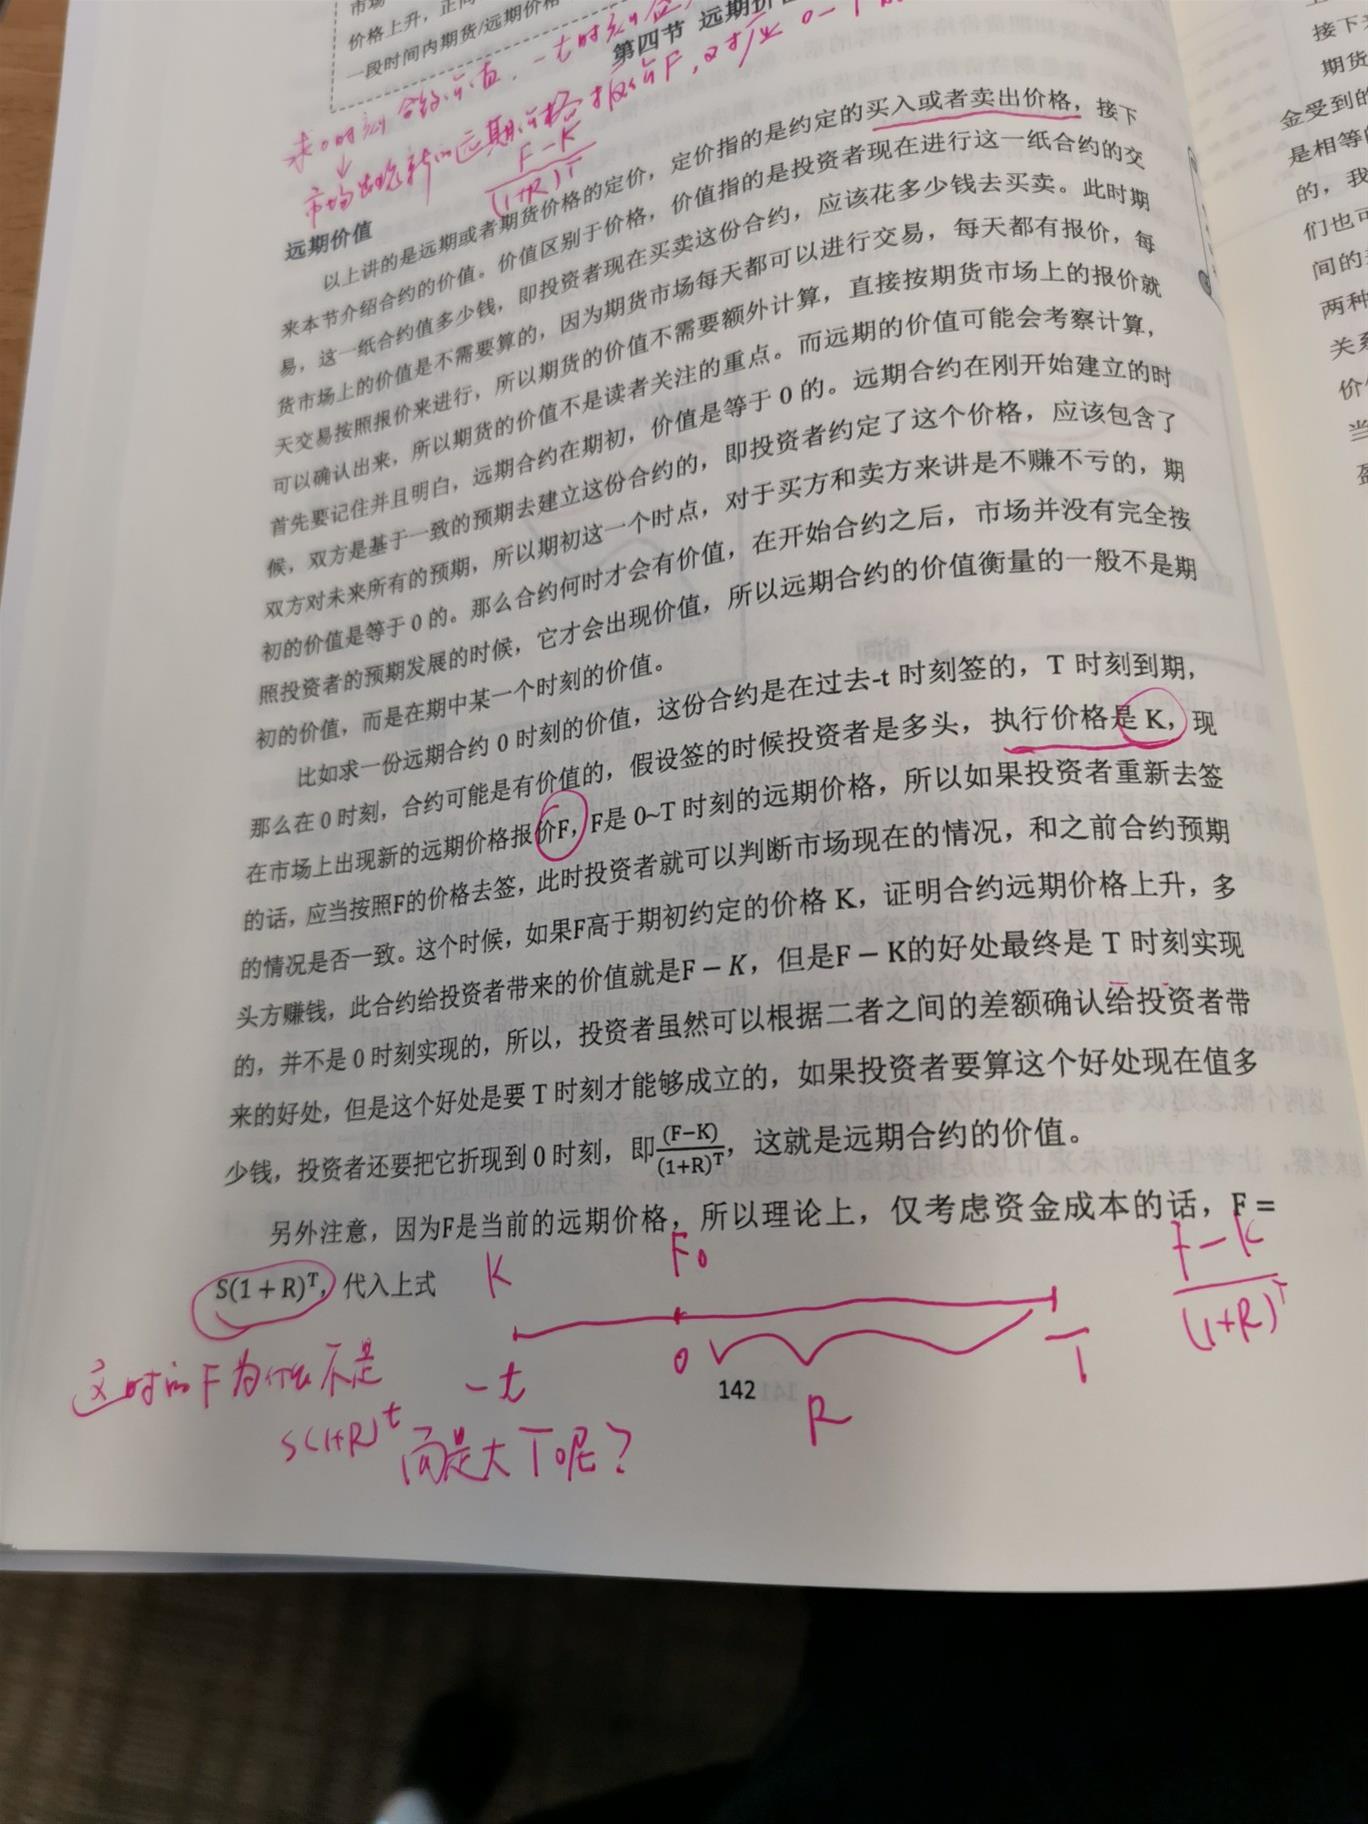 市场
价格上升，正向
一段时间内期货/远期价格
第四节 远期价
求0时刻合约价值，-t时刻
市场出现新的远期价格报价F，对应0-T
F-K
(1+R)^T
远期价值
以上讲的是远期或者期货价格的定价，定价指的是约定的买入或者卖出价格，接下
来本节介绍合约的价值。价值区别于价格，价值指的是投资者现在进行这一纸合约的交
易，这一纸合约值多少钱，即投资者现在买卖这份合约，应该花多少钱去买卖。此时期
货市场上的价值是不需要算的，因为期货市场每天都可以进行交易，每天都有报价，每
天交易按照报价来进行，所以期货的价值不需要额外计算，直接按期货市场上的报价就
可以确认出来，所以期货的价值不是读者关注的重点。而远期的价值可能会考察计算，
首先要记住并且明白，远期合约在期初，价值是等于 0 的。远期合约在刚开始建立的时
候，双方是基于一致的预期去建立这份合约的，即投资者约定了这个价格，应该包含了
双方对未来所有的预期，所以期初这一个时点，对于买方和卖方来讲是不赚不亏的，期
初的价值是等于 0 的。那么合约何时才会有价值，在开始合约之后，市场并没有完全按
照投资者的预期发展的时候，它才会出现价值，所以远期合约的价值衡量的一般不是期
初的价值，而是在期中某一个时刻的价值。
比如求一份远期合约 0 时刻的价值，这份合约是在过去-t 时刻签的，T 时刻到期，
那么在 0 时刻，合约可能是有价值的，假设签的时候投资者是多头，执行价格是 K，现
在市场上出现新的远期价格报价F，F是 0~T 时刻的远期价格，所以如果投资者重新去签
的话，应当按照F的价格去签，此时投资者就可以判断市场现在的情况，和之前合约预期
的情况是否一致。这个时候，如果F高于期初约定的价格 K，证明合约远期价格上升，多
头方赚钱，此合约给投资者带来的价值就是F − K，但是F − K的好处最终是 T 时刻实现
的，并不是 0 时刻实现的，所以，投资者虽然可以根据二者之间的差额确认给投资者带
来的好处，但是这个好处是要 T 时刻才能够成立的，如果投资者要算这个好处现在值多
少钱，投资者还要把它折现到 0 时刻，即(F−K)/(1+R)^T，这就是远期合约的价值。
另外注意，因为F是当前的远期价格，所以理论上，仅考虑资金成本的话，F =
S(1 + R)^T，代入上式
K F0
F-K
(1+R)^T
-t 0 T
R
这时的F为什么不是
S(1+R)^t 而是大T呢？
142
接下
期货
金受到的
是相等的
的，我
们也可
间的
两种
关系
价
当